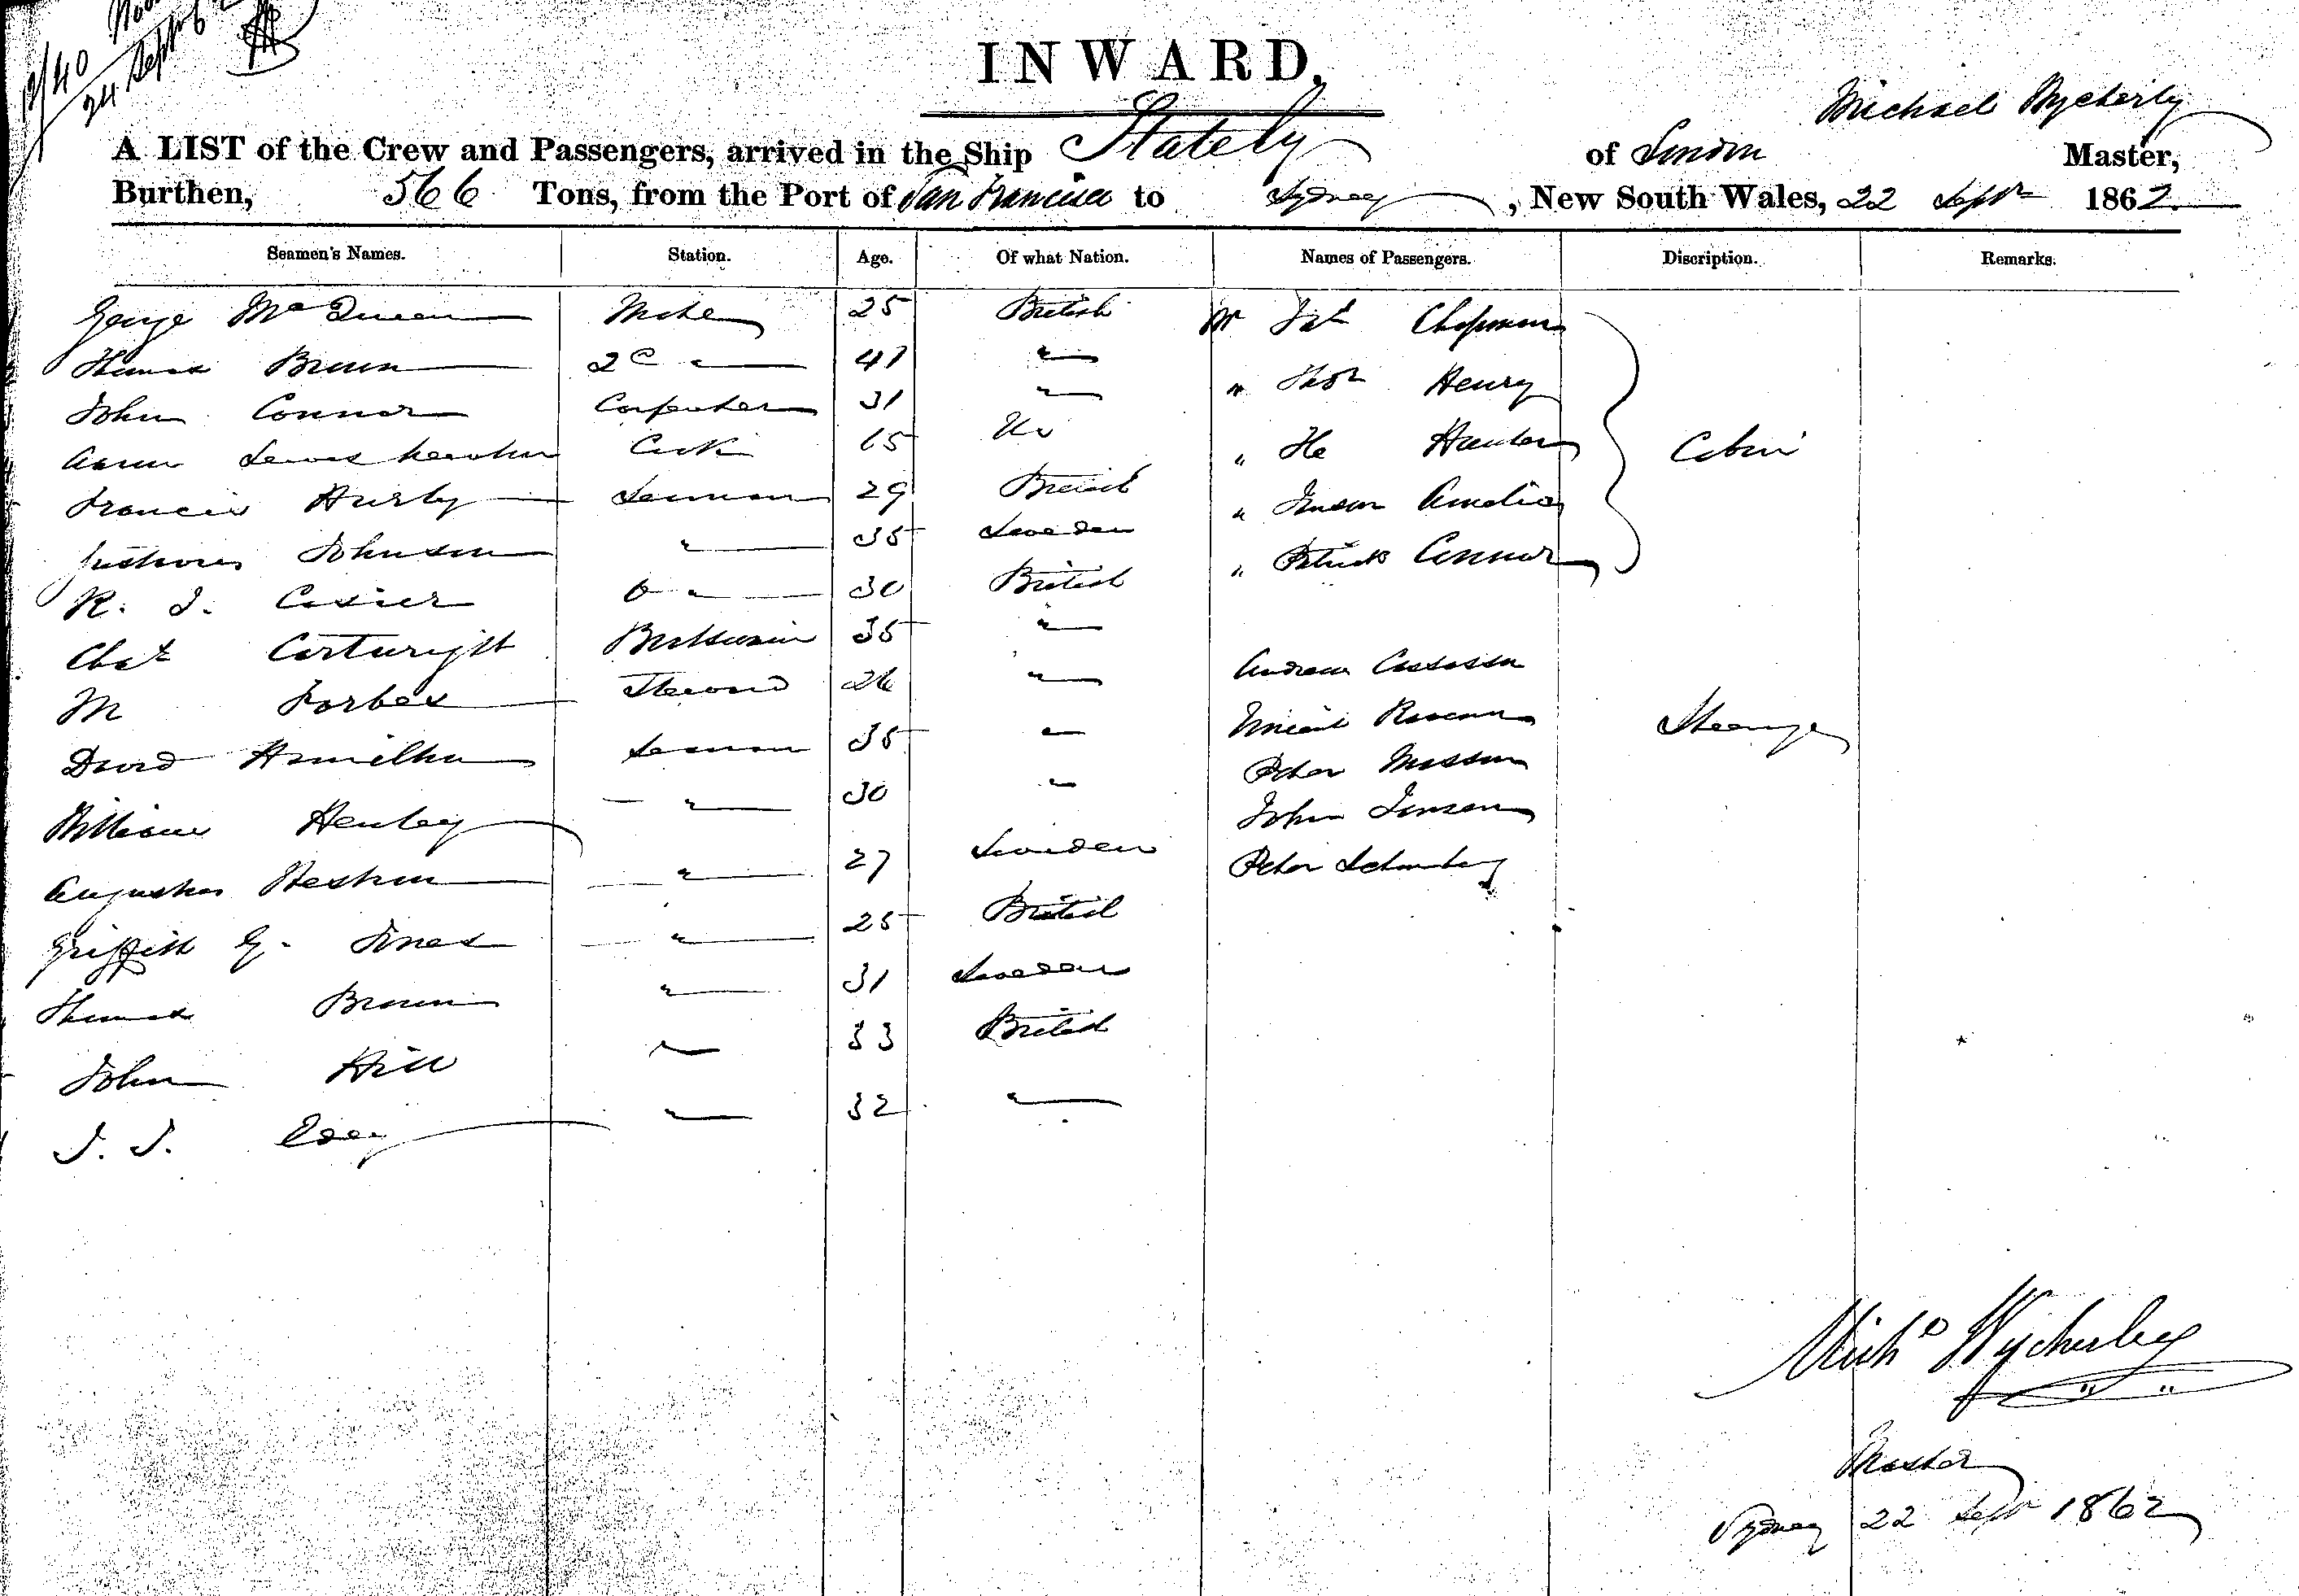 2/40
24 Sept 6
INWARD.
Michael Wycherly
A LIST of the Crew and Passengers, arrived in the Ship Stately of London Master,
Burthen, 566 Tons, from the Port of San Francisco to Sydney, New South Wales, 22 Septr 1862.
Seamen's Names. Station. Age. Of what Nation. Names of Passengers. Discription. Remarks.
George McQueen Mate 25 British Mr Jas Chapman
Thomas Brown 2d " 41 " " Thos Henry
John Connor Carpenter 31 "
Lewis Cook 65 US " He Hunter Cabin
Francis Hurly Seaman 29 British " Amelia
Johnson " 35 Sweden " Patrick Connor
R. J. Casier " 30 British
Chas Cartwright Boatswain 35 "
M Forbes Steward 26 " Andrew
David Hamilton Seaman 35 " Steerage
William Henley " 30 " Peter
John Jensen
Augustus " 27 Sweden Peter
Griffith G. Jones " 25 British
Thomas Brown " 31 Sweden
John Hill " 33 British
J. J. " 32 "
Michl Wycherley
Master
Sydney 22 Septr 1862